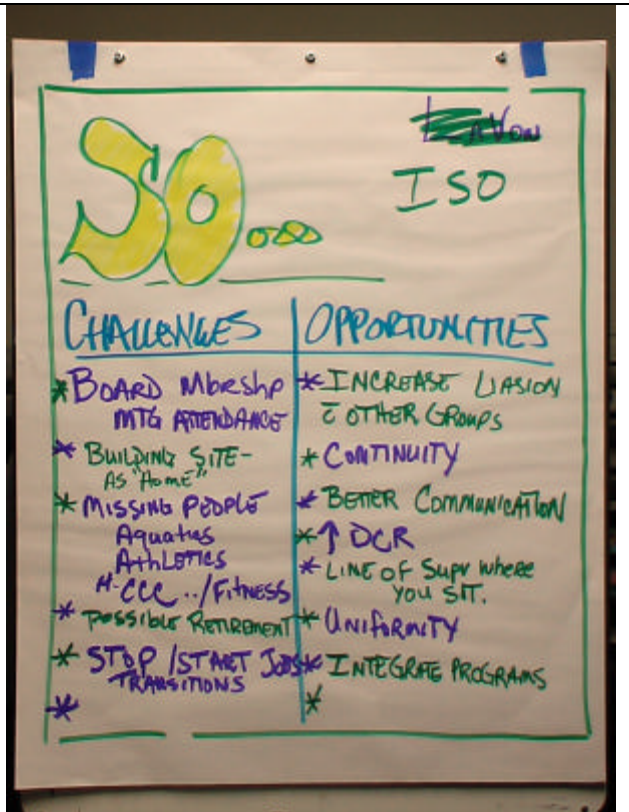 LaVon
SO...
ISO
CHALLENGES
* BOARD Mbrshp
MTG ATTENDANCE
* BUILDING SITE-
AS "HOME"
* MISSING PEOPLE
Aquatics
AthLETICS
H-CCC../FITNESS
* POSSIBLE RETIREMENT
* STOP/START JOBS
TRANSITIONS
*
OPPORTUNITIES
* INCREASE LIASION
c̄ OTHER GROUPS
* CONTINUITY
* BETTER COMMUNICATION
* ↑ DCR
* LINE OF Supv where
YOU SIT.
* UNIFORMITY
* INTEGRATE PROGRAMS
*